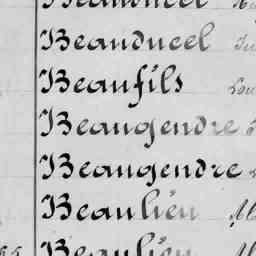 Beauducel
Beauducel
Beaufils
Beaugendre
Beaugendre
Beaulieu
Beaulieu